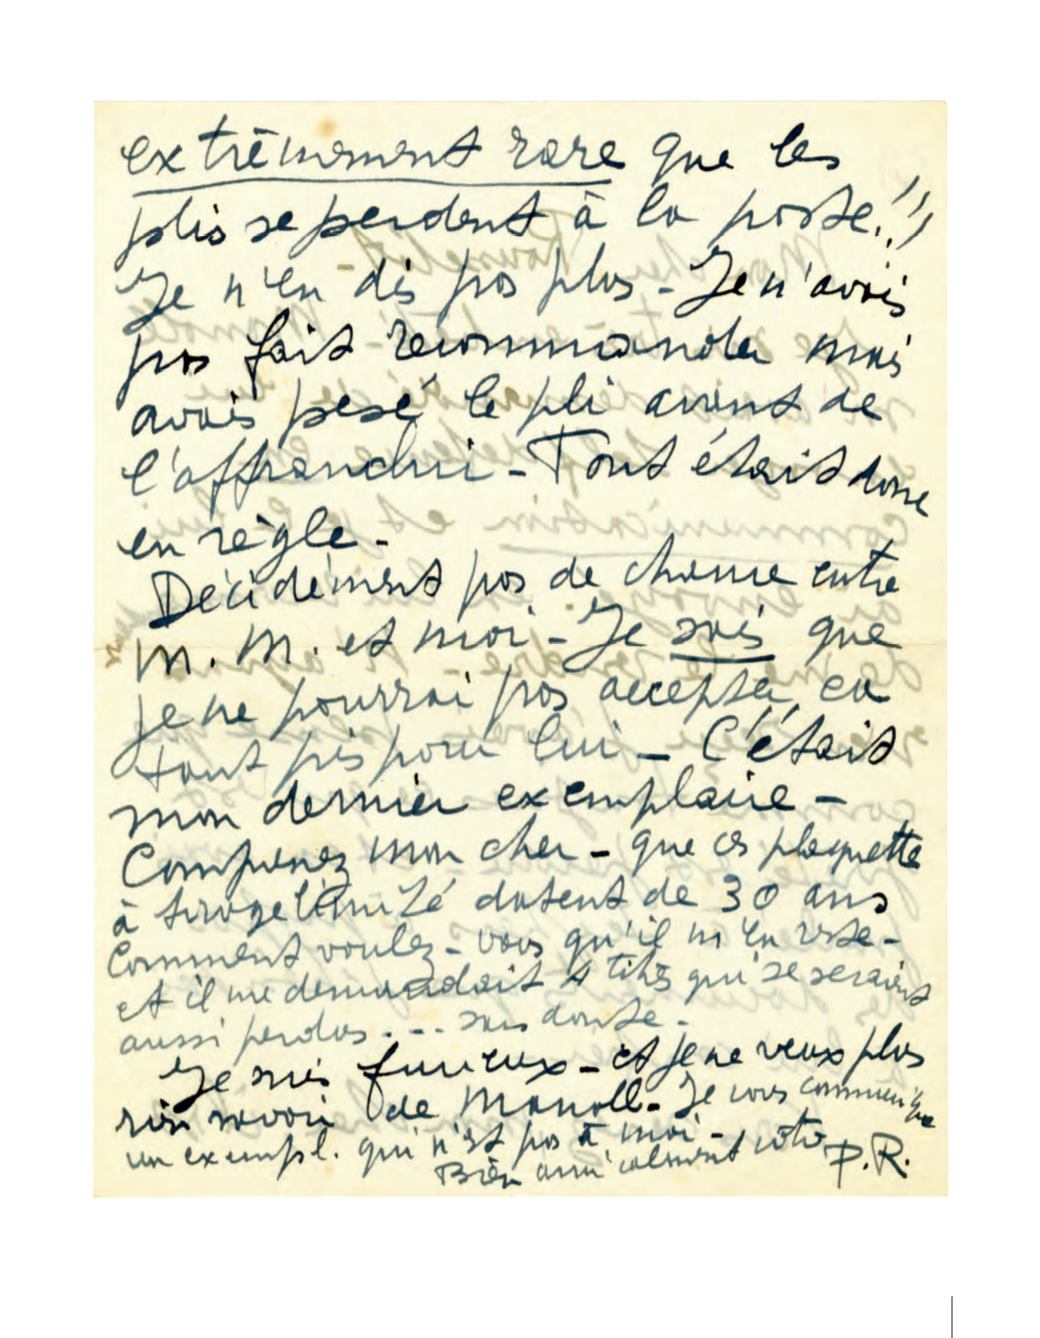 extrêmement rare que les
plis se perdent à la poste!!!
Je n'en dis pas plus - Je n'avais
pas fait recommander mais
avais pesé le pli avant de
l'affranchir - Tout était donc
en règle -
Décidément pas de chance entre
M. M. et moi - Je sais que
je ne pourrai pas accepter, ca
tant pis pour lui - C'était
mon dernier exemplaire -
Comprenez mon cher - que ces plaquette
à tirage limité datent de 30 ans
Comment voulez-vous qu'il m'en reste -
et il me demandait 4 titres qui se seraient
aussi perdus... sans doute -
Je suis furieux - et je ne veux plus
rien savoir de Manoll - Je vous communique
un exempl. qui n'est pas à moi -
Bien amicalement votre P.R.